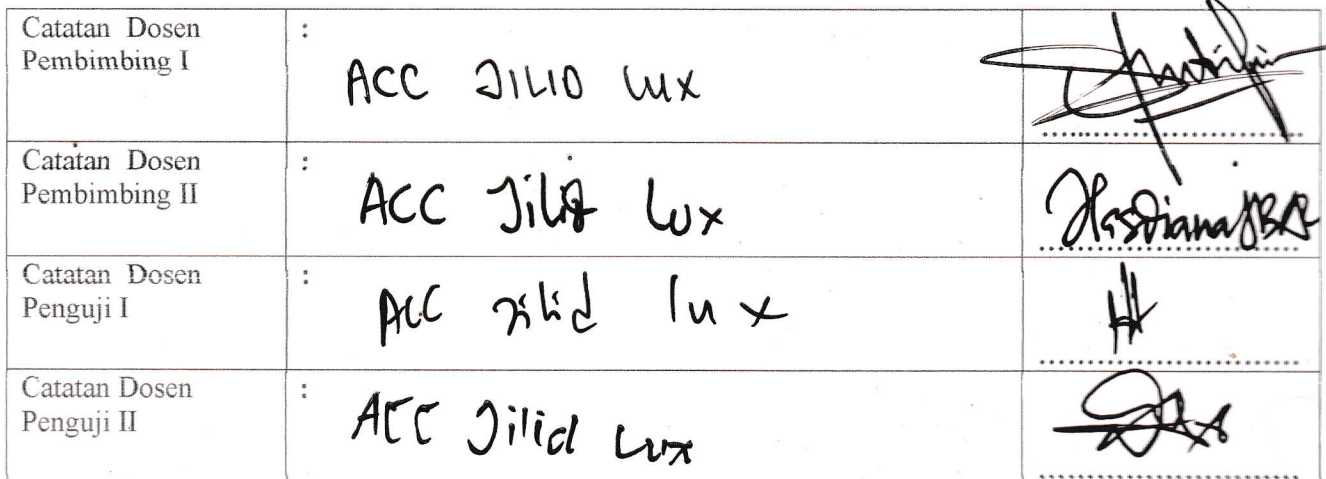 Catatan Dosen
Pembimbing I
:
ACC JILID LUX
Catatan Dosen
Pembimbing II
:
ACC Jilid Lux
HasdianaJBR
Catatan Dosen
Penguji I
:
ACC jilid lux
Catatan Dosen
Penguji II
:
ACC Jilid Lux